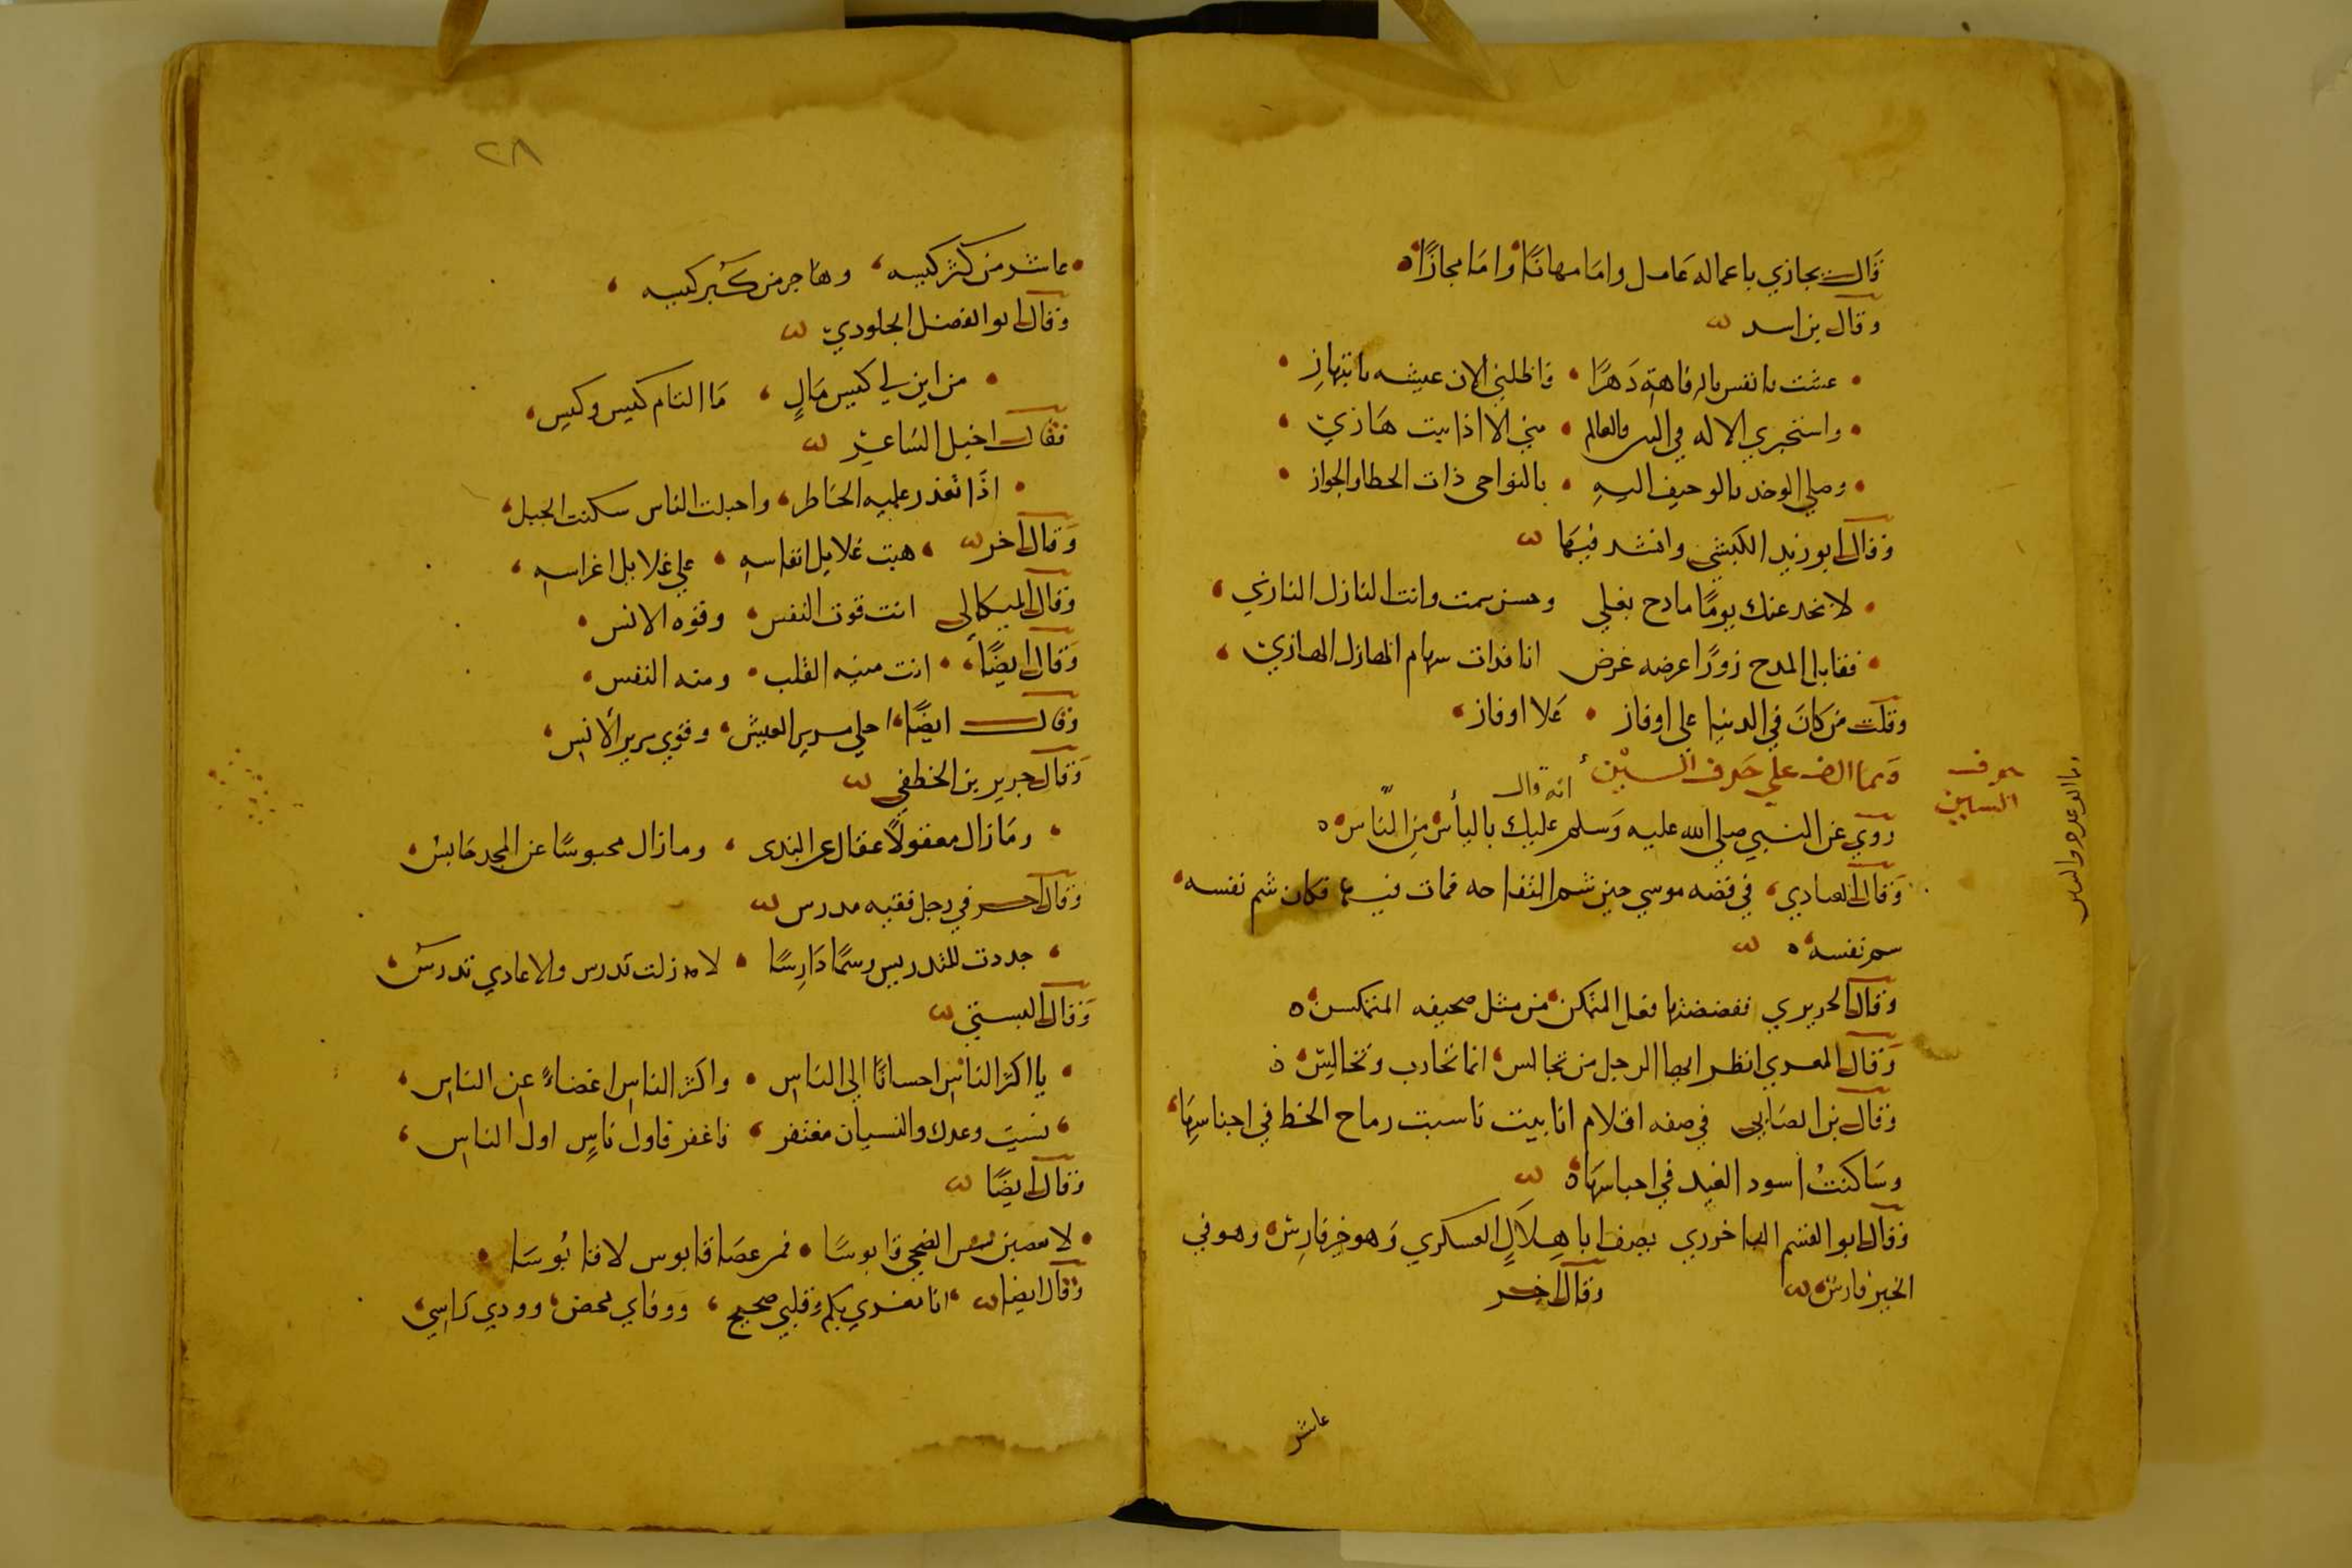 قال يجازي باعماله عامل واما مهانًا واما مجازًا
وقال بن اسد
عشت يا نفس بالرفاهة دَهرًا فاطلبي الان عيشه بانتهازِ
واستجيري الاله في السر والعالم مني الا اذا بت هَازيّ
وصلي الوخد بالوجيف اليهِ بالنواحى ذات الخطا والجواز
وقال ابو زيد الكبشي وانشد فيهَا
لا يخدعنك يومًا مادح بغلي وحسن سمت وانت النازل النازي
فقابل المدح زورًا عرضه غرض انا فذات سهام الهازل الهازي
وقلت من كانَ في الدنيا على اوفاز عَلا اوفاز
ومما الف علي حَرف السين
حرف
السين
انه قال
روي عن النبي صلي الله عليه وَسلم عليك باليأس مِن النَّاس
وقال العبادي في قصه موسي حين شم التفاحه فمات فيها فكان شم نفسه
سم نفسه
وقال الحريري ففضضتها فعل المتمكن من مثل صحيفه المتمكس
وَقال المعري انظر ايها الرجل من تجالس انما تحارب وتخالِسّ
وقال بن الصَابى في صفه اقلام انابيت ناسبت رماح الخط في اجناسِهَا
وسَاكنتْ اسود الغيد في احباسهَا
وقال ابو القسم الباخرزي يصف ابا هِلاَلٍ العسكري وَهو خبز فارِسّ وهو في
الخبز فارسّ وقال اخر
عاشر
عاشر من كثر كيسه وهَاجر من كَبر كيسه
وقال ابو الفضل الجلودي
من اين لي كيس مَالٍ مَا التام كيس وكيس
فقال اخيل الشاعر
اذَا تعذر عليه الخَاطر واحبلت الناس سكنت الجبل
وَقال اخر هبت غلايل انفاسهِ علي غلايل اغراسهِ
وقال الميكالى انت قوت النفس وقوه الانس
وَقال ايضًا انت منيه القلب ومنه النفس
وقال ايضًا احلي مرير العيش وقوي مرير الأنس
وَقال جرير بن الخطفي
ومَا زال معقولًا عقال عن الندى وما زال محبوسًا عن المجد حَابسُ
وقال اخر في رجل فقيه مدرس
جددت للتدريس رسمًا دَارِسًا لا زلت تدرس والاعادي تدرسُ
وَقال البستي
يا اكثر الناسِ احسانًا إلى الناسِ واكثر الناسِ اغضاءً عن الناسِ
نسيت وعدك والنسيان مغتفر فاغفر فاول نَاسٍ اول الناسِ
وقال ايضًا
لا تعصين شمس الضحي قابوسًا فمن عصَا قابوس لاقا بُوسَا
وقال ايضا انا نفسي بكم وقلبي صحيح ووفاي محض وودي راسي
٢٨